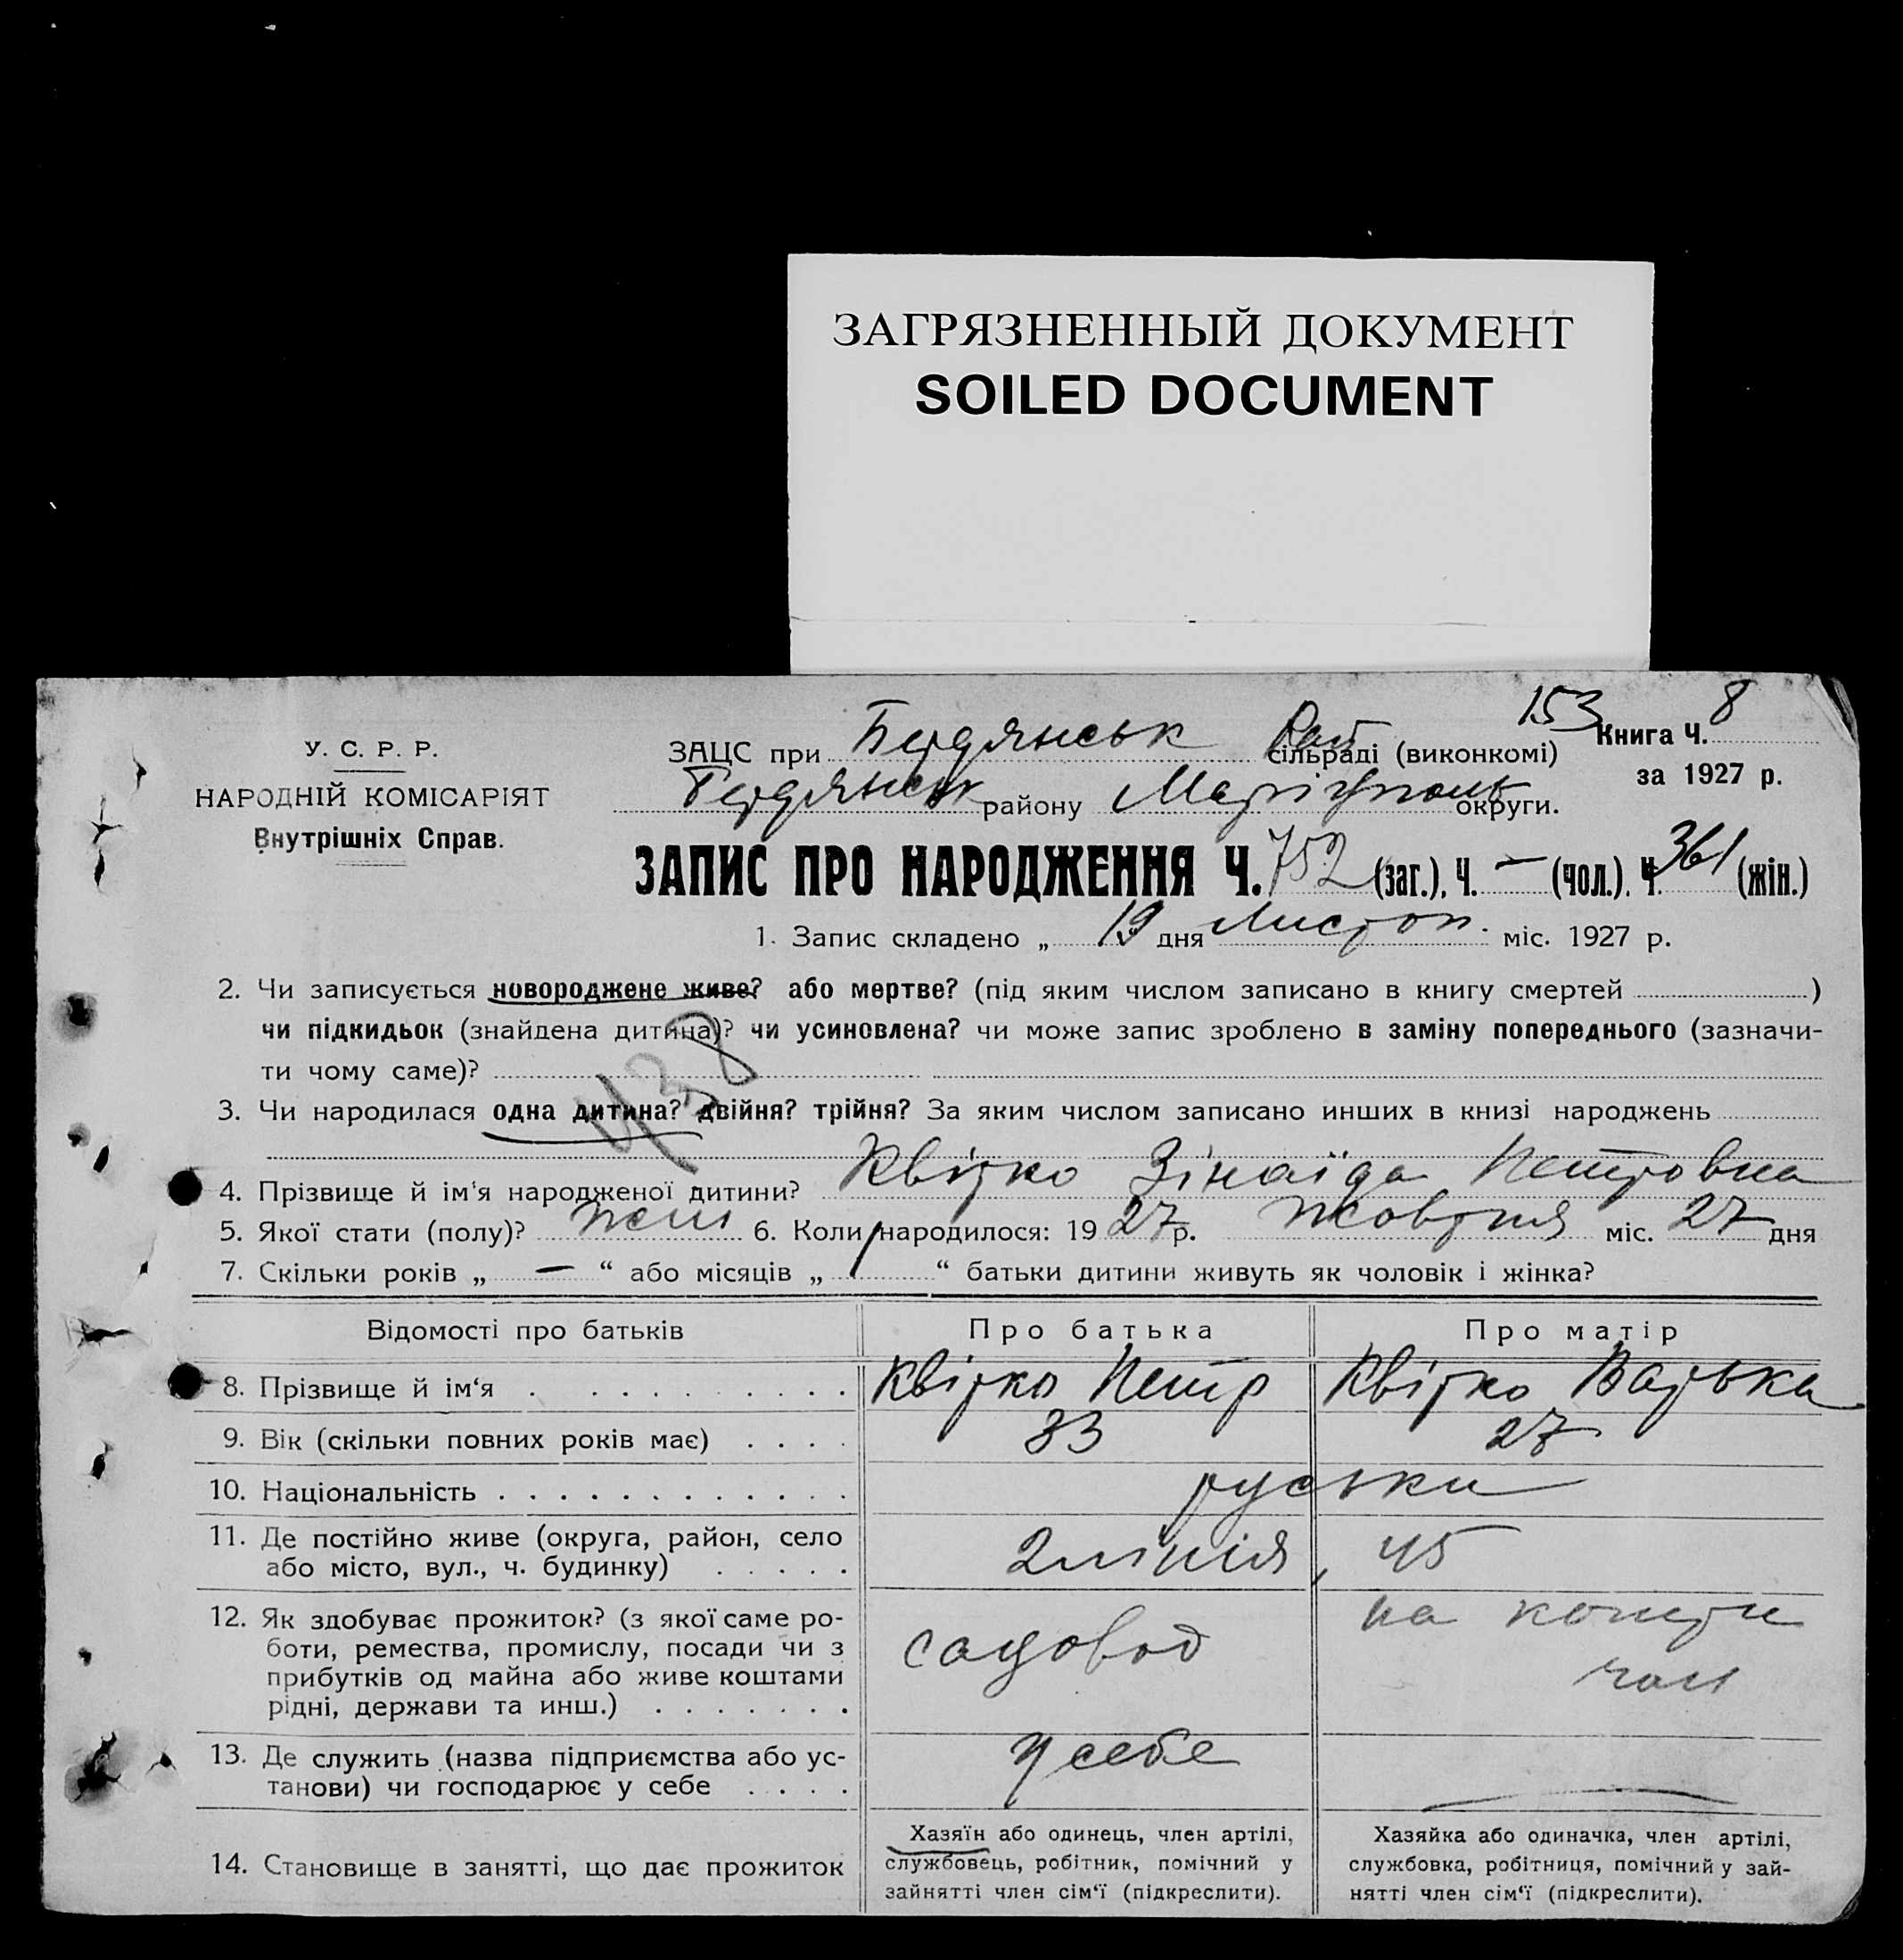 ЗАГРЯЗНЕННЫЙ ДОКУМЕНТ
SOILED DOCUMENT
153
У. С. Р. Р.
НАРОДНІЙ КОМІСАРІЯТ
Внутрішніх Справ.
ЗАЦС при Бердянськ Рай сільраді (виконкомі)
Книга Ч. 8
за 1927 р.
Бердянськ району Маріуполь округи.
ЗАПИС ПРО НАРОДЖЕННЯ Ч. 752 (заг.), Ч. — (чол.). Ч. 361 (жін.)
1. Запис складено „ 19 дня Листоп. міс. 1927 р.
2. Чи записується новороджене живе? або мертве? (під яким числом записано в книгу смертей )
чи підкидьок (знайдена дитина)? чи усиновлена? чи може запис зроблено в заміну попереднього (зазначи-
ти чому саме)?
438
3. Чи народилася одна дитина? двійня? трійня? За яким числом записано инших в книзі народжень
4. Прізвище й ім'я народженої дитини? Квітко Зінаїда Петровна
5. Якої стати (полу)? жен 6. Коли народилося: 1927 р. Жовтня міс. 27 дня
7. Скільки років „ — “ або місяців „ “ батьки дитини живуть як чоловік і жінка?
Відомості про батьків Про батька Про матір
8. Прізвище й ім‘я . . . . . . . . . . Квітко Петр Квітко Варька
9. Вік (скільки повних років має) . . . . 33 27
10. Національність . . . . . . . . . . . . руськи
11. Де постійно живе (округа, район, село
або місто, вул., ч. будинку) . . . . . 2 лінія, 45
12. Як здобуває прожиток? (з якої саме ро-
боти, ремества, промислу, посади чи з
прибутків од майна або живе коштами
рідні, держави та инш.) . . . . . . .
садовод
на
13. Де служить (назва підприємства або ус-
танови) чи господарює у себе . . . .
у себе —
14. Становище в занятті, що дає прожиток
Хазяїн або одинець, член артілі,
службовець, робітник, помічний у
зайнятті член сім‘ї (підкреслити).
Хазяйка або одиначка, член артілі,
службовка, робітниця, помічний у зай-
нятті член сім‘ї (підкреслити).